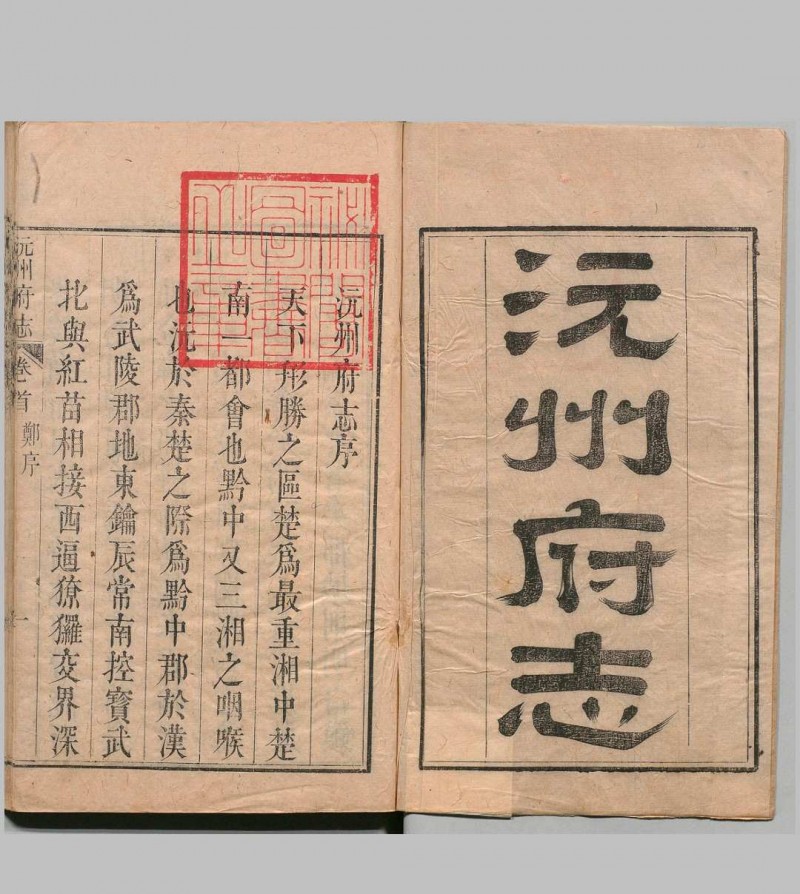 沅州府志
秘閣圖書之章
沅州府志序
天下形勝之區楚爲最重湘中楚
南一都會也黔中又三湘之咽喉
也沅於秦楚之際爲黔中郡於漢
爲武陵郡地東鑰辰常南控寶武
北與紅苗相接西逼獠玀交界深
沅州府志 卷首 鄭序 一